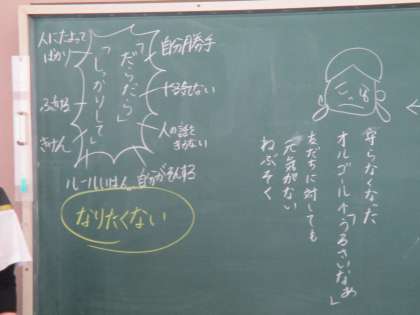 人にたよって
ばかり
「だらだら」
「しっかりして」
自分勝手
人の話を
きかない
きけん
自分がそんする
なりたくない
守らなくなった
オルゴール↑「うるさいなぁ」
友だちに対しても
元気がない
ねぶそく